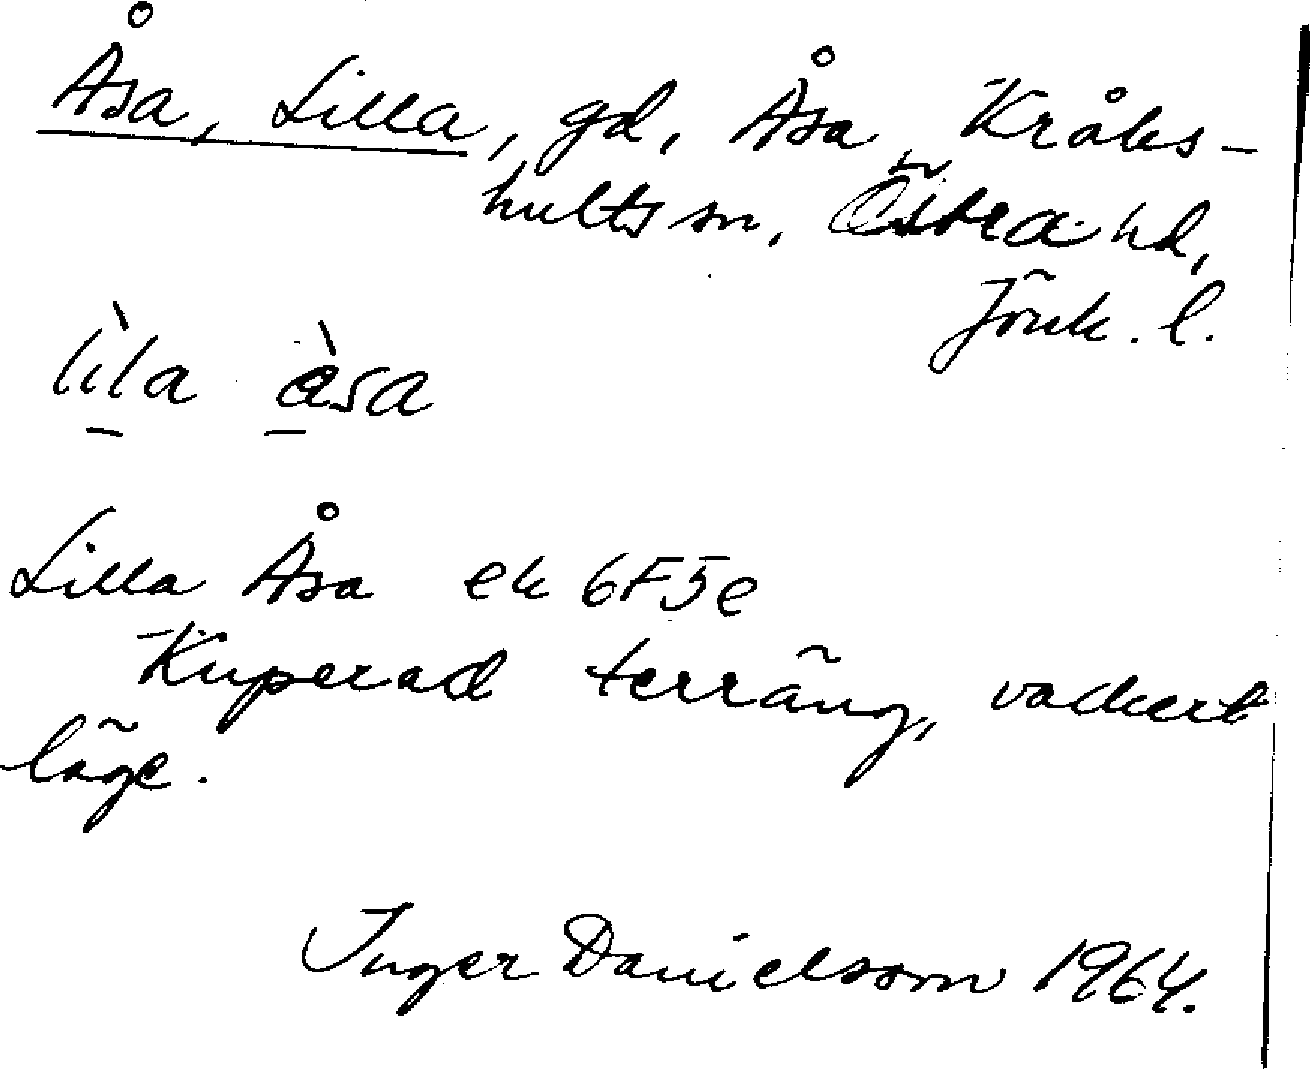 Åsa, Lilla, gd, Åsa, Kråks-
hults sn, Östra hd,
Jönk. l.
lìla àsa
Lilla Åsa ek 6F5e
Kuperad terräng, vackert
läge.
Inger Danielsson 1964.